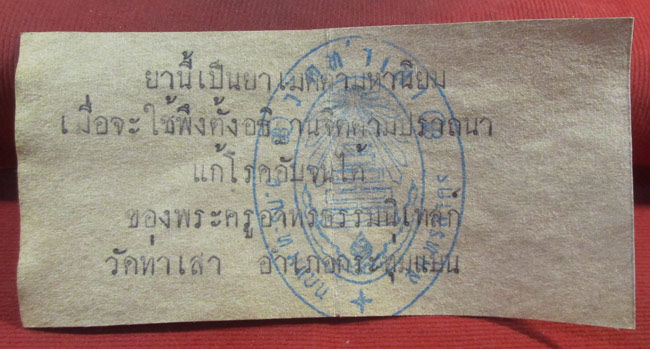 ยานี้เป็นยาเมตตามหานิยม
เมื่อจะใช้พึงตั้งอธิฐานจิตตามปรารถนา
แก้โรคอับจนได้
ของพระครูอาทรธรรมนิเทศก์
วัดท่าเสา อำเภอกระทุ่มแบน
วัดท่าเสา
สมุทรสาคร